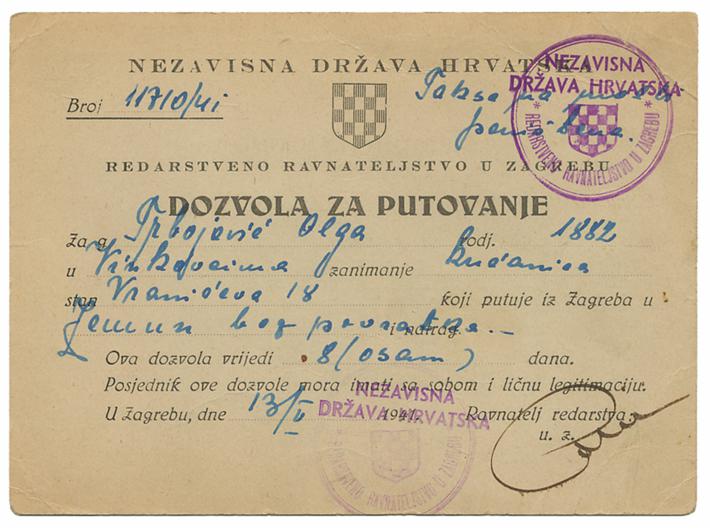 NEZAVISNA DRŽAVA HRVATSKA
Broj 11710/41
Taksa
NEZAVISNA
DRŽAVA HRVATSKA
* REDARSTVENO RAVNATELJSTVO U ZAGREBU *
REDARSTVENO RAVNATELJSTVO U ZAGREBU
DOZVOLA ZA PUTOVANJE
Za g. Trbojević Olga rodj. 1882
u Vinkovcima zanimanje kućanica
stan Vranićeva 18 koji putuje iz Zagreba u
Zemun bez povratka.— i natrag.
Ova dozvola vrijedi 8 (osam) dana.
Posjednik ove dozvole mora imati sa sobom i ličnu legitimaciju.
U Zagrebu, dne 13/V 1941. Ravnatelj redarstva
u. z.
NEZAVISNA
DRŽAVA HRVATSKA
REDARSTVENO RAVNATELJSTVO U ZAGREBU